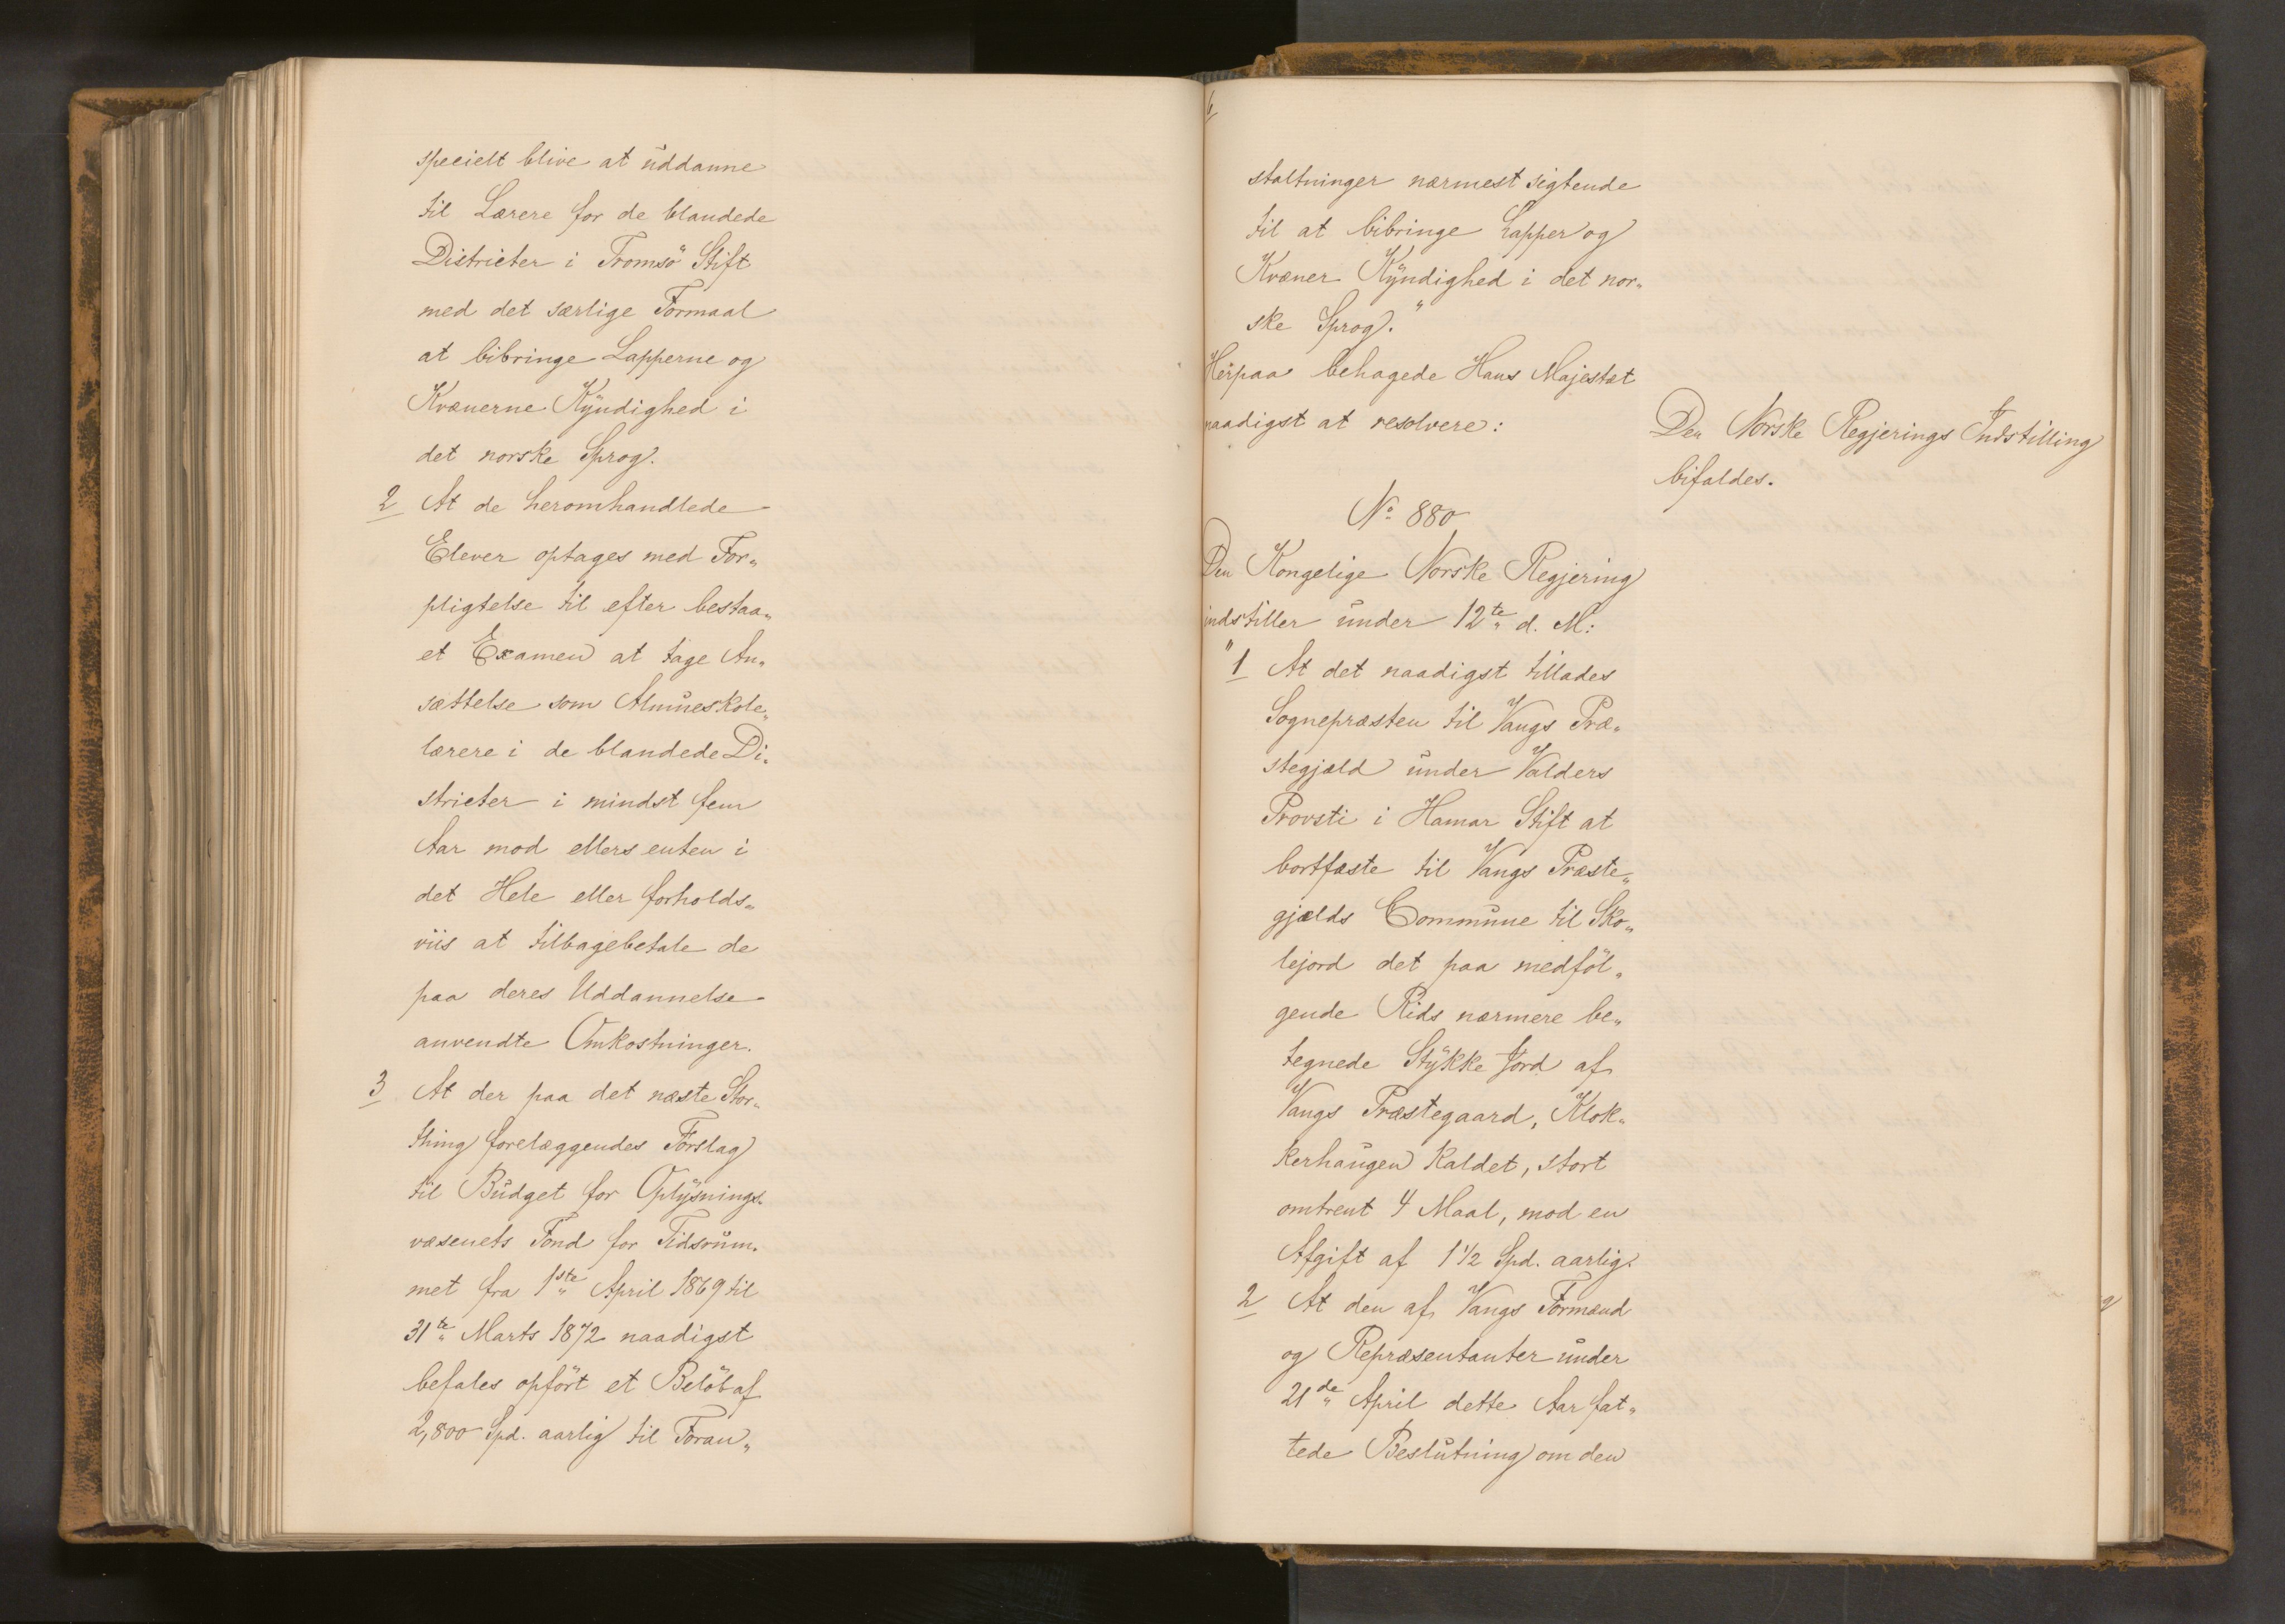 specielt blive at uddanne
til Lærere for de blandede
Districter i Tromsö Stift
med det særlige Formaal
at bibringe Lapperne og
Kvænerne Kyndighed i
det norske Sprog.
2 At de heromhandlede
Elever optages med For„
pligtelse til efter bestaa„
et Examen at tage An„
sættelse som Almueskole„
lærere i de blandede Di„
stricter i mindst fem
Aar mod ellers enten i
det Hele eller forholds„
viis at tilbagebetale de
paa deres Uddannelse
anvendte Omkostninger.
3 At der paa det næste Stor„
thing forelæggendes Forslag
til Budget for Oplysnings„
væsenets Fond for Tidsrum„
met fra 1ste April 1869 til
31te Marts 1872 naadigst
befales opfört et Belöb af
2,800 Spd. aarlig til Foran„
staltninger nærmest sigtende
til at bibringe Lapper og
Kvæner Kyndighed i det nor„
ske Sprog."
Herpaa behagede Hans Majestæt
naadigst at resolvere:
Den Norske Regjerings Indstilling
bifaldes.
No 880
Den Kongelige Norske Regjering
indstiller under 12te d. M:
"1 At det naadigst tillades
Sognepræsten til Vangs Præ„
stegjæld under Valders
Provsti i Hamar Stift at
bortfæste til Vangs Præste„
gjælds Commune til Sko„
lejord det paa medföl„
gende Rids nærmere be„
tegnede Stykke Jord af
Vangs Præstegaard, Klok„
kerhaugen kaldet, stort
omtrent 4 Maal, mod en
Afgift af 1 1/2 Spd. aarlig.
2 At den af Vangs Formænd
og Repræsentanter under
21de April dette Aar fat„
tede Beslutning om den